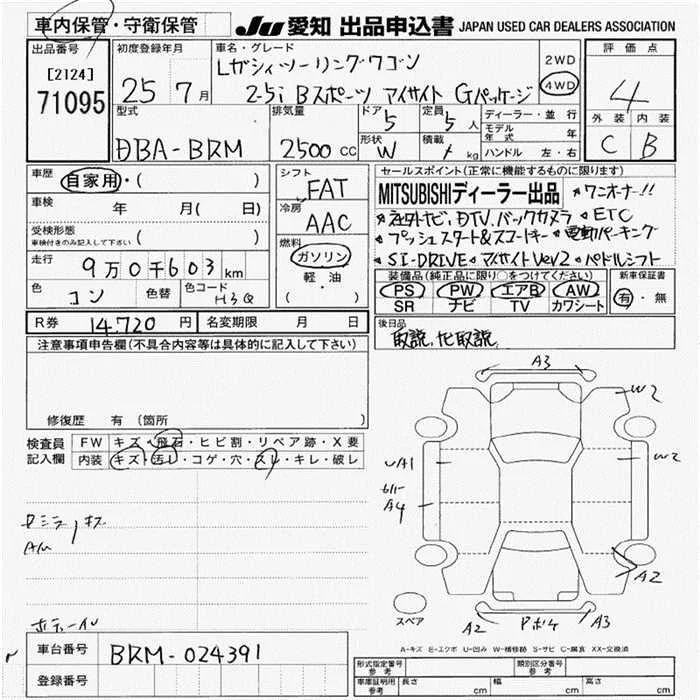 車内保管・守衛保管
JU 愛知 出品申込書 JAPAN USED CAR DEALERS ASSOCIATION
出品番号
[2124]
71095
初度登録年月
25 7 月
車名・グレード
レガシィツーリングワゴン
2.5i Bスポーツ アイサイト Gパッケージ
2WD
4WD
評価点
4
外装 内装
C B
型式
DBA-BRM
排気量
2500 CC
ドア 5
定員 5 人
形状 W
積載 / kg
ディーラー・並行
モデル年式 年
ハンドル 左・右
車歴 自家用・( )
車検 年 月( 日)
受検形態
車検付きのみ記入して下さい ( )
走行 9万0千603 km
色 コン 色替 色コード H3Q
シフト FAT
冷房 AAC
燃料
ガソリン
軽・油
( )
セールスポイント(正常に機能するものに限ります)
MITSUBISHIディーラー出品 ワンオーナー!!
ナビ、DTV、バックカメラ ETC
プッシュスタート&スマートキー 電動パーキング
SI-DRIVE アイサイトVer2 パドルシフト
装備品(純正品に限り○をつけてください)
PS PW エアB AW
SR ナビ TV カワシート
新車保証書
有・無
R券 14.720 円 名変期限 月 日
後日品
取説、ナビ取説
注意事項申告欄(不具合内容等は具体的に記入して下さい)
修復歴 有 (箇所 )
検査員記入欄
FW キズ・飛石・ヒビ割・リペア跡・X要
内装 キズ・汚レ・コゲ・穴・スレ・キレ・破レ
A3
W2
UA1
W2
A4
A2
A2
A3
スペア
A-キズ E-エクボ U-凹み W-補修跡 S-サビ C-腐食 XX-交換済
車台番号 BRM-024391
登録番号
形式指定番号 参考
類別区分番号 参考
車庫証明用 参考 長さ cm 幅 cm 高さ cm